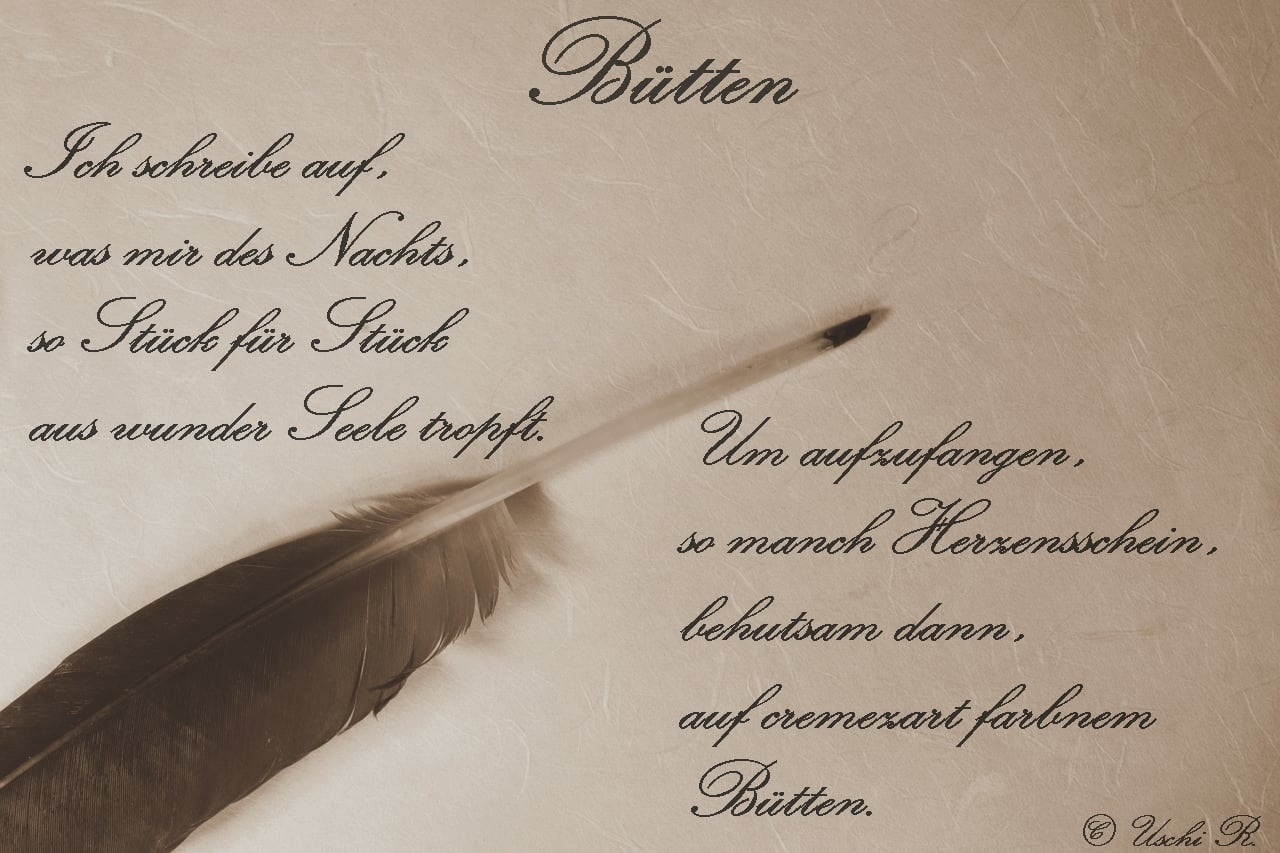 Bütten
Ich schreibe auf,
was mir des Nachts,
so Stück für Stück
aus wunder Seele tropft.
Um aufzufangen,
so manch Herzensschein,
behutsam dann,
auf cremezart farbnem
Bütten.
© Uschi R.